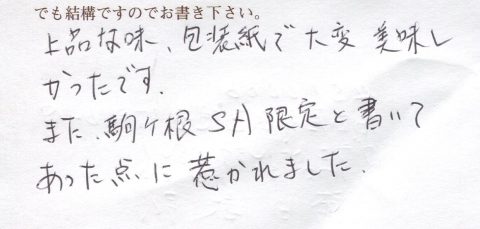 でも結構ですのでお書き下さい。
上品な味、包装紙で大変 美味し
かったです。
また、駒ヶ根SA限定と書いて
あった点に惹かれました。